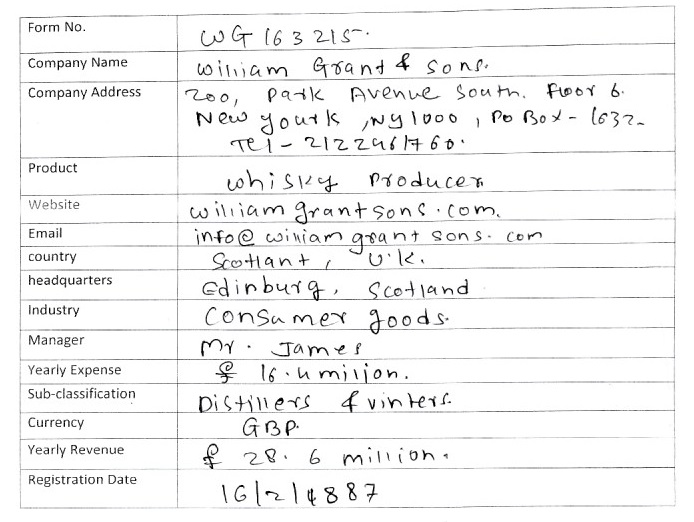 Form No. WG 163215.
Company Name William Grant & sons.
Company Address 200, Park Avenue South. Floor 6.
New yourk , NY 1000 , Po Box - 1632
Tel - 2122461760.
Product whisky Producer
Website williamgrantsons.com.
Email info@williamgrantsons.com
country Scotlant , U.K.
headquarters Edinburg, Scotland
Industry Consumer goods.
Manager Mr. James
Yearly Expense £ 16.4 milion.
Sub-classification Distillers & vinters.
Currency GBP.
Yearly Revenue £ 28.6 million.
Registration Date 16/2/1887